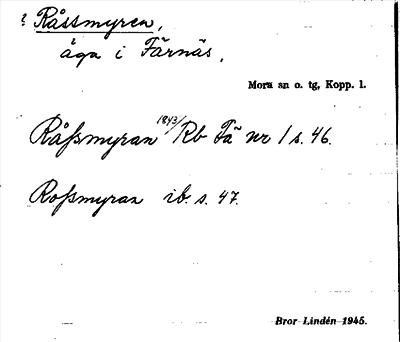 ? Råssmyren,
äga i Färnäs.
Mora sn o. tg, Kopp. l.
Råſsmyran 1843/Rb Fä nr 1 s. 46.
Roſsmyran ib. s. 47.
Bror Lindén 1945.